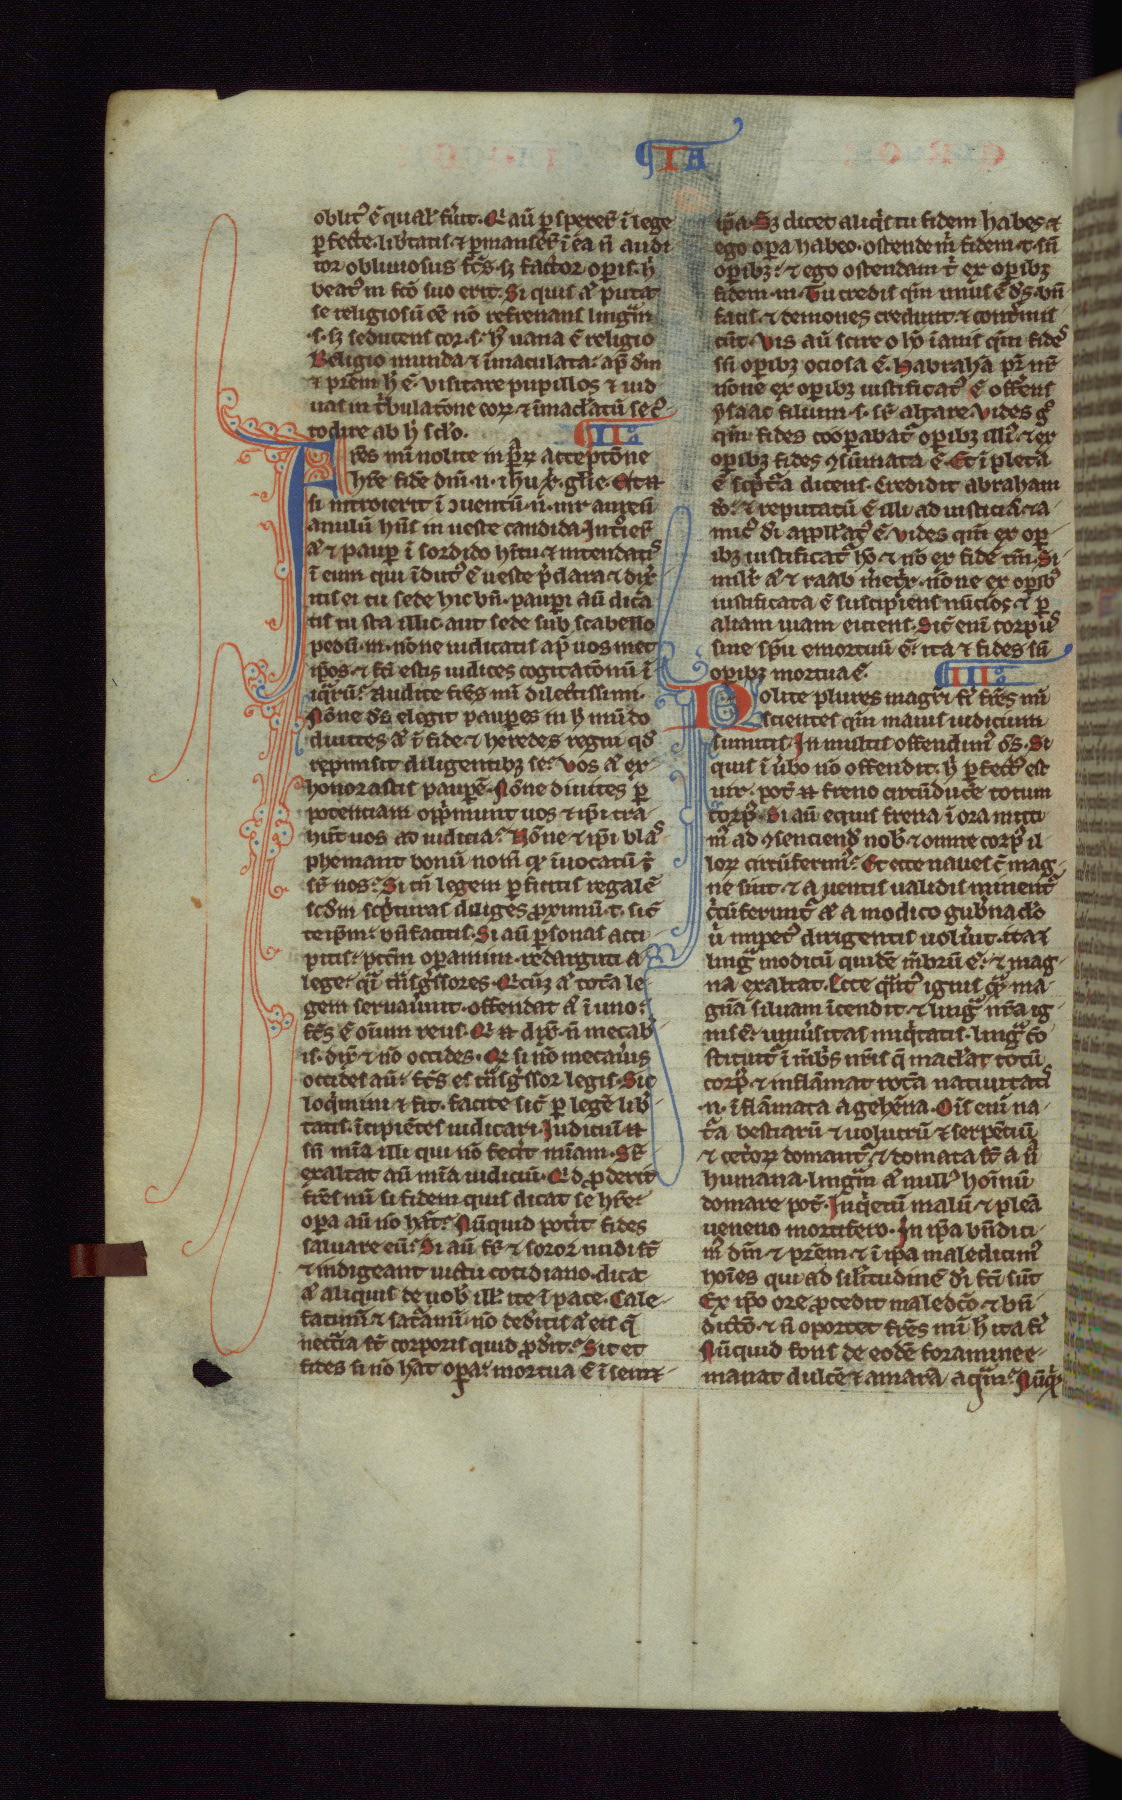 IA
oblit᷒ ē qual᷒ fuit. Qi aū ꝑspexerit ī lege
ꝑfecte libertatis ⁊ ꝑmanserit ī ea nō audi
tor obliuiosus fcs sꝫ factor oꝑis. hic
beat᷒ in fco suo erit. Si quis at putat
se religiosū eē nō refrenans linguam
.s. sꝫ seducens cor .s. h᷒ uana ē religio
Religio munda ⁊ īmaculata. apd deum
⁊ prēm h̄ ē. uisitare pupillos ⁊ uid
uas in tribulatōne eoꝝ ⁊ īmaclatū se c᷒
todire ab h᷒ sclo. II
Fres mi nolite in ꝑsonaꝝ acceptōne
hre fidē dni .n. ihu xpi glie. Et n̄
si introierit ī ꝯuentū .u. uir aureū
anulū hns in ueste candida. Introierit
at ⁊ pauꝑ ī sordido hitu ⁊ intendatis
ī eum qui īdut᷒ ē ueste p̄clara ⁊ dix
itis ei tu sede hic bn̄. pauꝑi aū dica
tis tu sta illic aut sede sub scabello
pedū .m. nōne iudicatis apd uos met
ipos ⁊ fcī estis iudices cogitatōnū ī
iq̄rū. Audite frēs mi dilectissimi.
Nōne ds elegit pauꝑes in h᷒ mūdo
diuites at ī fide ⁊ heredes regni qd
repmisit diligentibꝫ se. Uos at ex
honorastis pauperē. Nōne diuites ꝑ
potentiam opp̄munt uos ⁊ ipi tra
hūt uos ad iudicia. Nōne ⁊ ipi blas
phemant bonū nom̄ qd īuocatū ē
sr̄ nos. Si tn̄ legem ꝑficitis regalē
scdm scpturas diliges ꝓximū .t. sic
te ipm. bn̄ facitis. Si aū ꝑsonas acci
pitis. pctm oꝑamini. redarguti a
lege. q̄i trāsgssores. Qcūqꝫ at totā le
gem seruauerit. offendat at ī uno.
fcs ē oīum reus. Qi n̄ dixit. nō mecab
is. dixit ⁊ nō occides. Qd si nō mecaberis
occides aū. fcs es trāsgssor legis. Sic
loq̄mini ⁊ sic facite sic̄ ꝑ legē lib
tatis īcipiētes iudicari. Iudiciū n̄
sn̄ mia illi qui nō fecit miam. Suꝑ
exaltat aū mia iudiciū. Qd ꝓderit
frēs mi si fidem quis dicat se hre.
oꝑa aū nō hat. Nūquid poterit fides
saluare eū. Si aū fr ⁊ soror nudi sr̄
⁊ indigeant uictu cotidiano. dicat
at aliquis de uob illis. ite ī pace. Cale
facimi ⁊ saturamī. nō dederitis at eis q̄
nccia sr̄ corporis quid ꝓderit. Sic et
fides si nō hat oꝑa. mortua ē ī semet
ipā. Sꝫ dicet aliqis tu fidem habes ⁊
ego oꝑa habeo. ostende m̄ fidem .t. sn̄
oꝑibꝫ. ⁊ ego ostendam t̄ ex oꝑibꝫ
fidem .m. Tu credis qm̄ unus ē ds. bn̄
facis. ⁊ demones credunt ⁊ contremis
cūt. Vis aū scire o ho īanis qm̄ fides
sn̄ oꝑibꝫ ociosa ē. Habrahā pr̄ nr̄
nōne ex oꝑibꝫ iustificat᷒ ē offerens
ysaac filium .s. sr̄ altare. Uides gͦ
qm̄ fides cooꝑabat᷒ oꝑibꝫ illi᷒ ⁊ ex
oꝑibꝫ fides ꝯsūmata ē. Et īpleta
ē scptura dicens. Credidit abraham
do. ⁊ reputatū ē illi ad iusticiā ⁊ a
mic᷒ di appellat᷒ ē. Uides qm̄ ex oꝑ
ibꝫ iustificat᷒ ho ⁊ nō ex fide tm̄. Si
milr̄ at ⁊ raab meretrix. nōne ex oꝑibꝫ
iustificata ē suscipiens nūcios ⁊ ꝑ
aliam uiam eiciens. Sic eni corpus
sine spū emortuū ē. ita ⁊ fides sn̄
oꝑibꝫ mortua ē. III
Nolite plures magri fi frēs mi
scientes qm̄ maius iudicium
sumitis. In multis offendim᷒ ōs. Si
quis ī ubo nō offendit. h᷒ ꝑfect᷒ est
uir. pot n̄ freno circūduce totum
corp᷒. Si aū equis frena ī ora mitti
m᷒ ad ꝯsenciend nob ⁊ omne corp᷒ il
loꝝ circūferim᷒. Et ecce naues c̄ mag
ne sint ⁊ a uentis ualidis minent᷒
circūferunt᷒ at a modico gubnaclo
u᷒ impet᷒ dirigentis uoluit. ita ⁊
lingua modicū quidē mbrū ē. ⁊ mag
na exaltat. Ecce q̄nt᷒ ignis q̄m ma
gnā siluam īcendit ⁊ lingua nr̄a ig
nis ē. uniuersitas iniq̄tatis. lingua cō
stituit᷒ ī mbris nr̄is q̄ maclat totū
corp᷒ ⁊ inflāmat rotā natiuitatis
.n. īflāmata a gehenna. Ois eni na
tura bestiarū ⁊ uolucrū ⁊ serpētiū
⁊ ceteroꝝ domant᷒ ⁊ domata sr̄ a n̄
humana. linguam at null᷒ hoīnū
domare pot. Inq̄etū malū ⁊ plēa
ueneno mortifero. In ipa bn̄dici
m᷒ dm̄ ⁊ prēm ⁊ ī ipa maledicim᷒
hoīes qui ad silitudinē di fcī sūt
Ex ipo ore ꝓcedit maledco ⁊ bn̄
dictō. ⁊ nō oportet frēs mi h ita fi
Nūquid fons de eodē foramine e
manat dulcē ⁊ amarā aquam. Nūqd